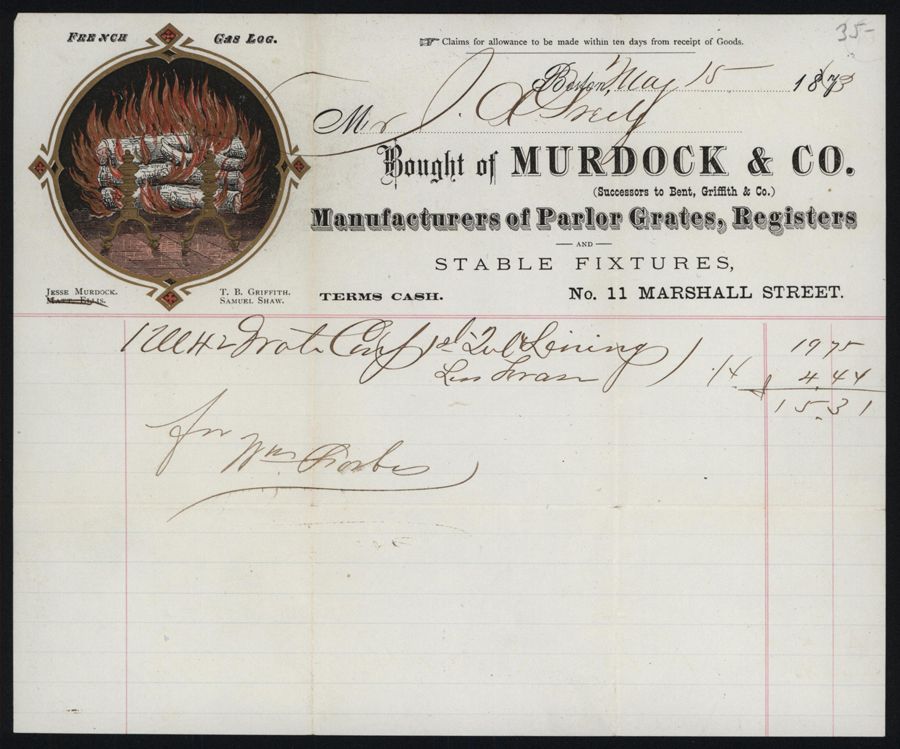 35-
FRENCH GAS LOG.
☞ Claims for allowance to be made within ten days from receipt of Goods.
Boston, May 15 1873
Mr J.
Bought of MURDOCK & CO.
(Successors to Bent, Griffith & Co.)
Manufacturers of Parlor Grates, Registers
AND
STABLE FIXTURES,
JESSE MURDOCK. T. B. GRIFFITH.
MATT. ELLIS. SAMUEL SHAW.
TERMS CASH. No. 11 MARSHALL STREET.
Grate Lining 19 75
Less 4.44
15.31
for Wm Forbes